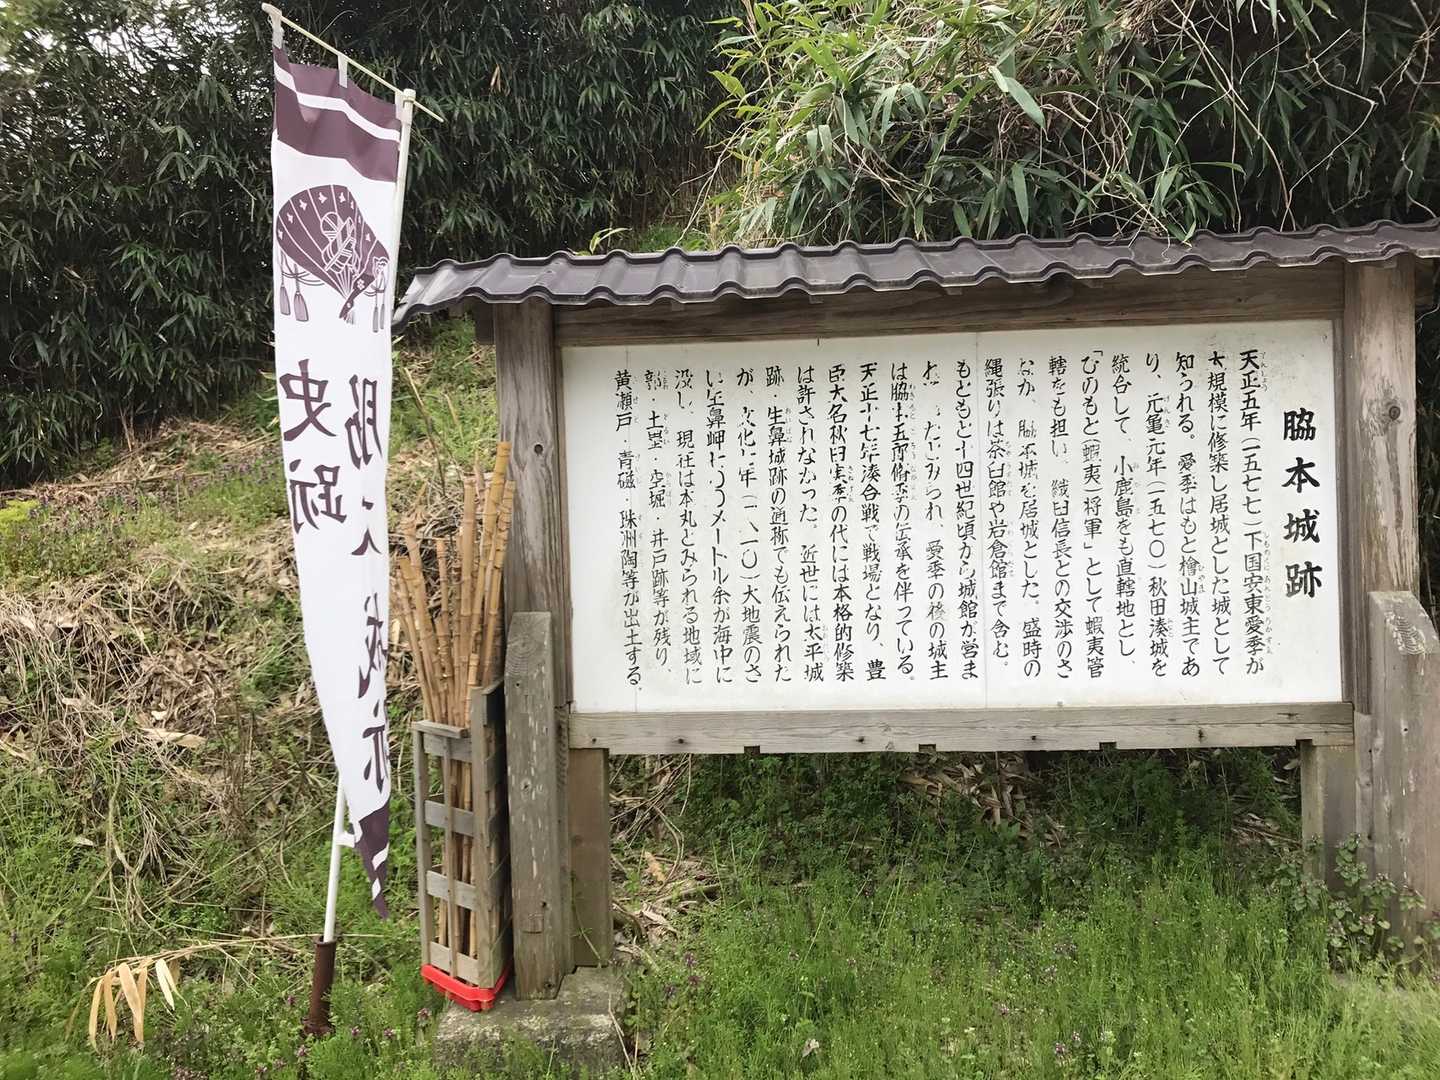 脇本城跡
天正五年（一五七七）下国安東愛季が
大規模に修築し居城とした城として
知られる。愛季はもと檜山城主であ
り、元亀元年（一五七〇）秋田湊城を
統合して、小鹿島をも直轄地とし、
「ひのもと（蝦夷）将軍」として蝦夷管
轄をも担い、織田信長との交渉のさ
なか、脇本城を居城とした。盛時の
縄張りは茶臼館や岩倉館まで含む。
もともと十四世紀頃から城館が営ま
れ、愛季の後の城主
は脇本五郎脩季の伝承を伴っている。
天正十七年湊合戦で戦場となり、豊
臣大名秋田実季の代には本格的修築
は許されなかった。近世には太平城
跡・生鼻城跡の通称でも伝えられた
が、文化七年（一八一〇）大地震のさ
い生鼻岬は メートル余が海中に
没し、現在は本丸とみられる地域に
郭・土塁・空堀・井戸跡等が残り、
黄瀬戸・青磁・珠洲陶等が出土する。
史跡
脇本城跡